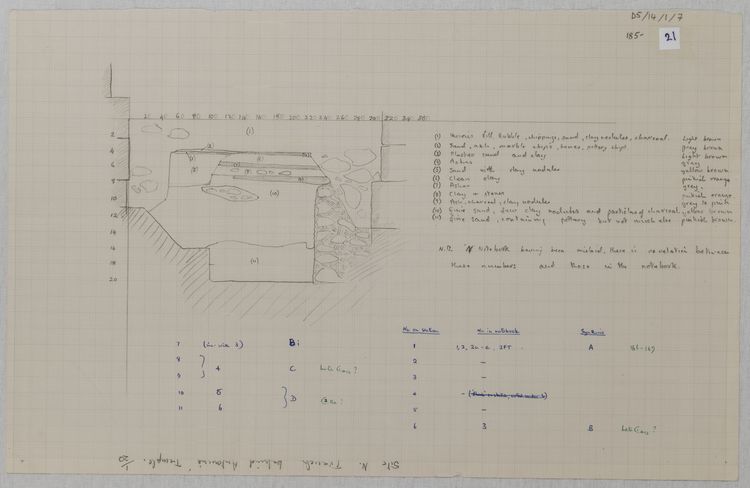 D5/14/1/7
185-
21
20 40 60 80 100 120 140 160 180 200 220 240 260 280 300 320 340 360
2
4
6
9
10
12
14
16
18
20
(1)
(10)
(11)
(1) Various fill. Rubble, chippings, sand, clay nodules, charcoal. Light brown
(2) Sand, ash, marble chips, bones, pottery chips. grey brown
(3) sand and clay light brown
(4) Ashes grey
(5) Sand with clay nodules yellow brown
(6) Clean clay pinkish orange
(7) Ashes grey.
(8) Clay + stones pinkish orange
(9) Ash, charcoal, clay nodules grey to pink
(10) Fine sand, few clay nodules and particles of charcoal, yellow brown
(11) Fine sand, containing pottery but not much else pinkish brown.
N.B. Notebook having been mislaid, there is no relation between
these numbers and those in the notebook.
No on section No in notebook Synthesis
7 (in with 3) B i
1 1, 2, 2a-c, 2FT A
8
9 4 C Late Class?
2 -
3 -
10 5
11 6 D
4 -
5 -
6 3 B Late Class?
Site N. Trench behind Antonine Temple. 1/20